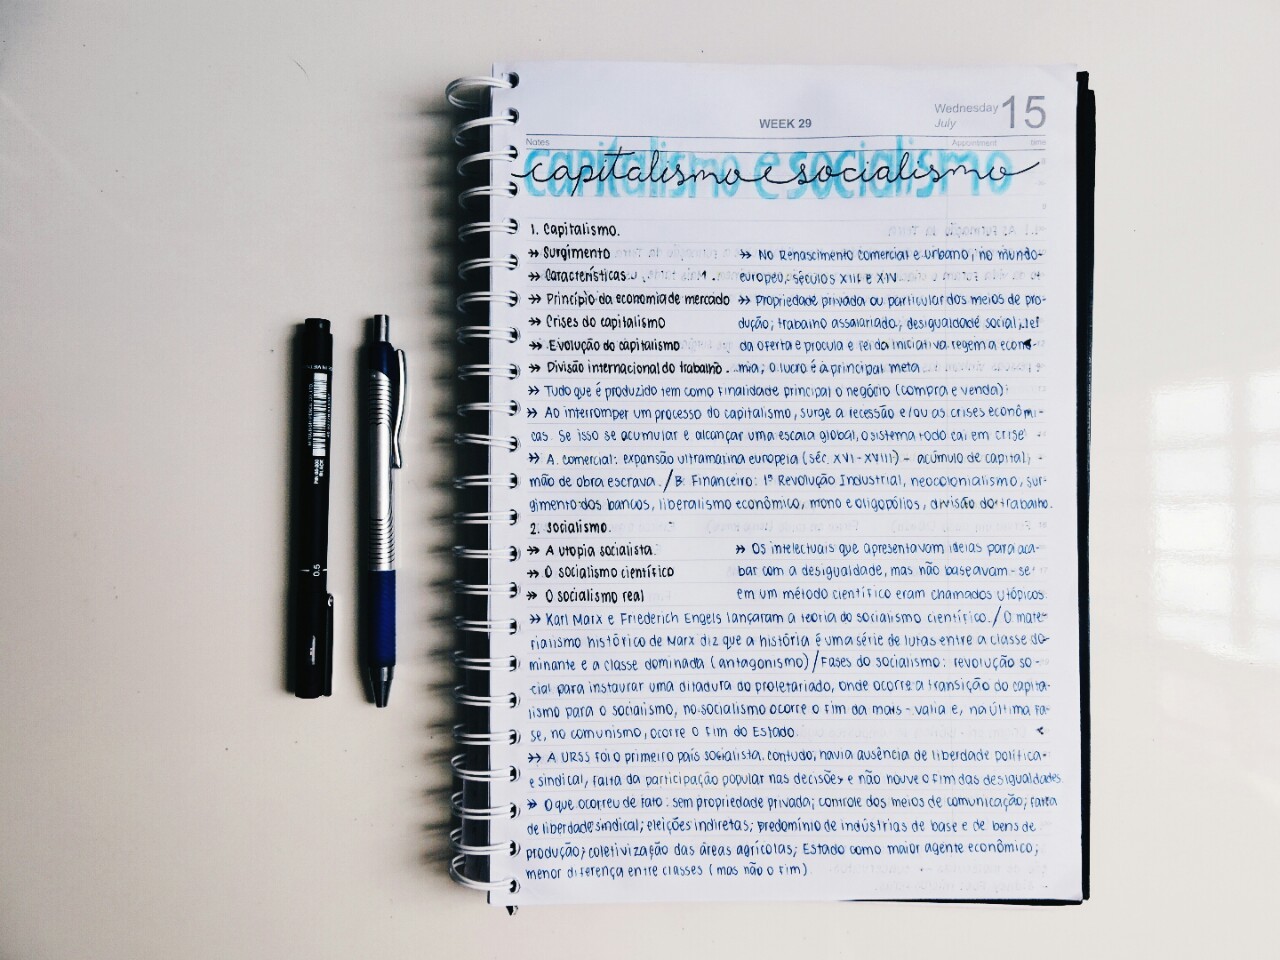 Wednesday 15
July
WEEK 29
Notes
Appointment
capitalismo e socialismo
1. Capitalismo.
» Surgimento
» Características
» Princípio da economia de mercado
» Crises do capitalismo
» Evolução do capitalismo
» Divisão internacional do trabalho.
» No Renascimento comercial e urbano, no mundo
europeu, séculos XIII e XIV
» Propriedade privada ou particular dos meios de pro-
dução; trabalho assalariado; desigualdade social; lei
da oferta e procula e lei da iniciativa regem a econo-
mia; o lucro é a principal meta
» Tudo que é produzido tem como finalidade principal o negócio (compra e venda)
» Ao interromper um processo do capitalismo, surge a recessão e/ou as crises econômi-
cas. Se isso se acumular e alcançar uma escala global, o sistema todo cai em crise
» A. comercial: expansão ultramarina europeia (séc. XVI-XVIII) - acúmulo de capital,
mão de obra escrava. / B. Financeiro: 1ª Revolução Industrial, neocolonialismo, sur-
gimento dos bancos, liberalismo econômico, mono e oligopólios, divisão do trabalho.
2. Socialismo.
» A utopia socialista
» O socialismo científico
» O socialismo real
» Os intelectuais que apresentavam ideias para aca-
bar com a desigualdade, mas não baseavam-se
em um método científico eram chamados utópicos.
» Karl Marx e Friederich Engels lançaram a teoria do socialismo científico. / O mate-
rialismo histórico de Marx diz que a história é uma série de lutas entre a classe do-
minante e a classe dominada (antagonismo) / Fases do socialismo: revolução so-
cial para instaurar uma ditadura do proletariado, onde ocorre a transição do capita-
lismo para o socialismo, no socialismo ocorre o fim da mais-valia e, na última fa-
se, no comunismo, ocorre o fim do Estado.
» A URSS foi o primeiro país socialista. contudo, havia ausência de liberdade política
e sindical, falta da participação popular nas decisões e não houve o fim das desigualdades
» O que ocorreu de fato: sem propriedade privada; controle dos meios de comunicação; falta
de liberdade sindical; eleições indiretas; predomínio de indústrias de base e de bens de
produção; coletivização das áreas agrícolas; Estado como maior agente econômico;
menor diferença entre classes (mas não o fim)
0.5